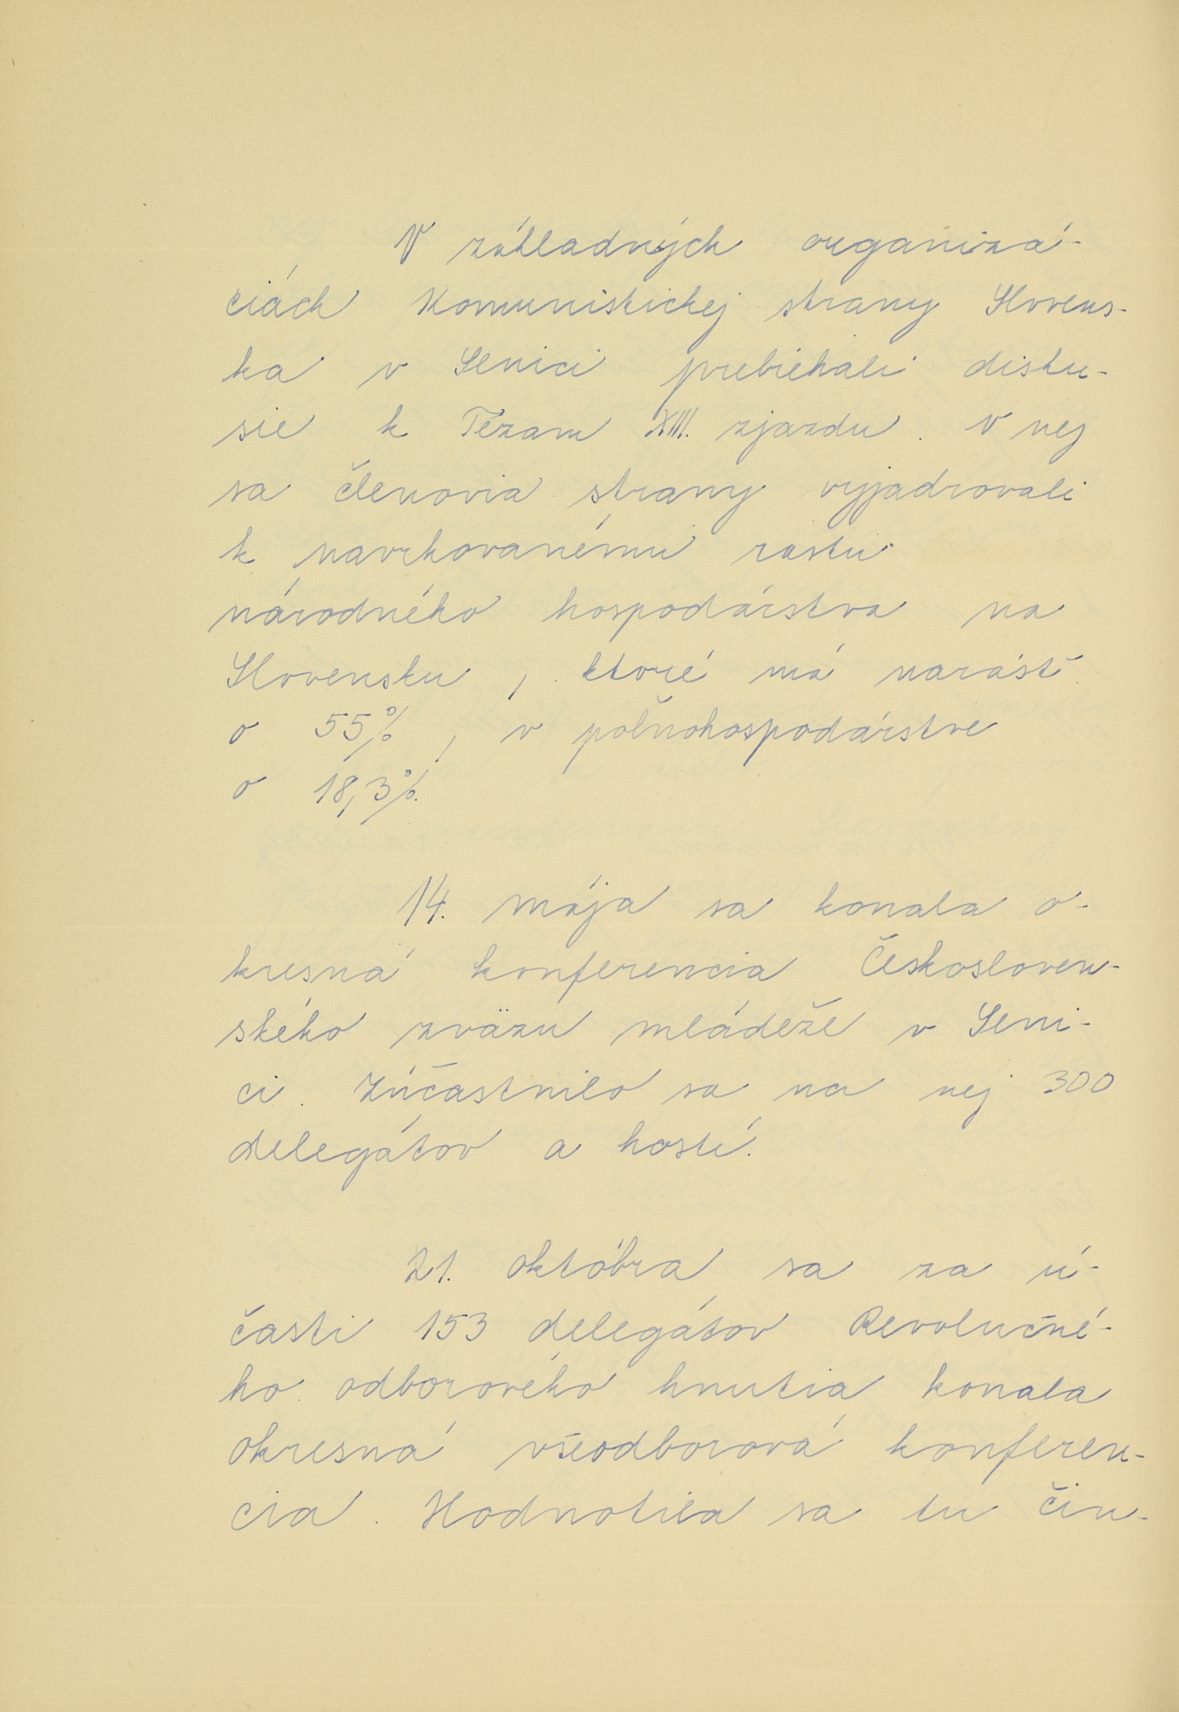 V základných organizá-
ciách Komunistickej strany Slovens-
ka v Senici prebiehali disku-
sie k Tézam XIII. zjazdu. V nej
sa členovia strany vyjadrovali
k navrhovanému rastu
národného hospodárstva na
Slovensku, ktoré má narásť
o 55%, v poľnohospodárstve
o 18,3%.
14. mája sa konala o-
kresná konferencia Českosloven-
ského zväzu mládeže v Seni-
ci. Zúčastnilo sa na nej 300
delegátov a hostí.
21. októbra sa za ú-
časti 153 delegátov Revolučné-
ho odborového hnutia konala
okresná všeodborová konferen-
cia. Hodnotila sa tu čin-